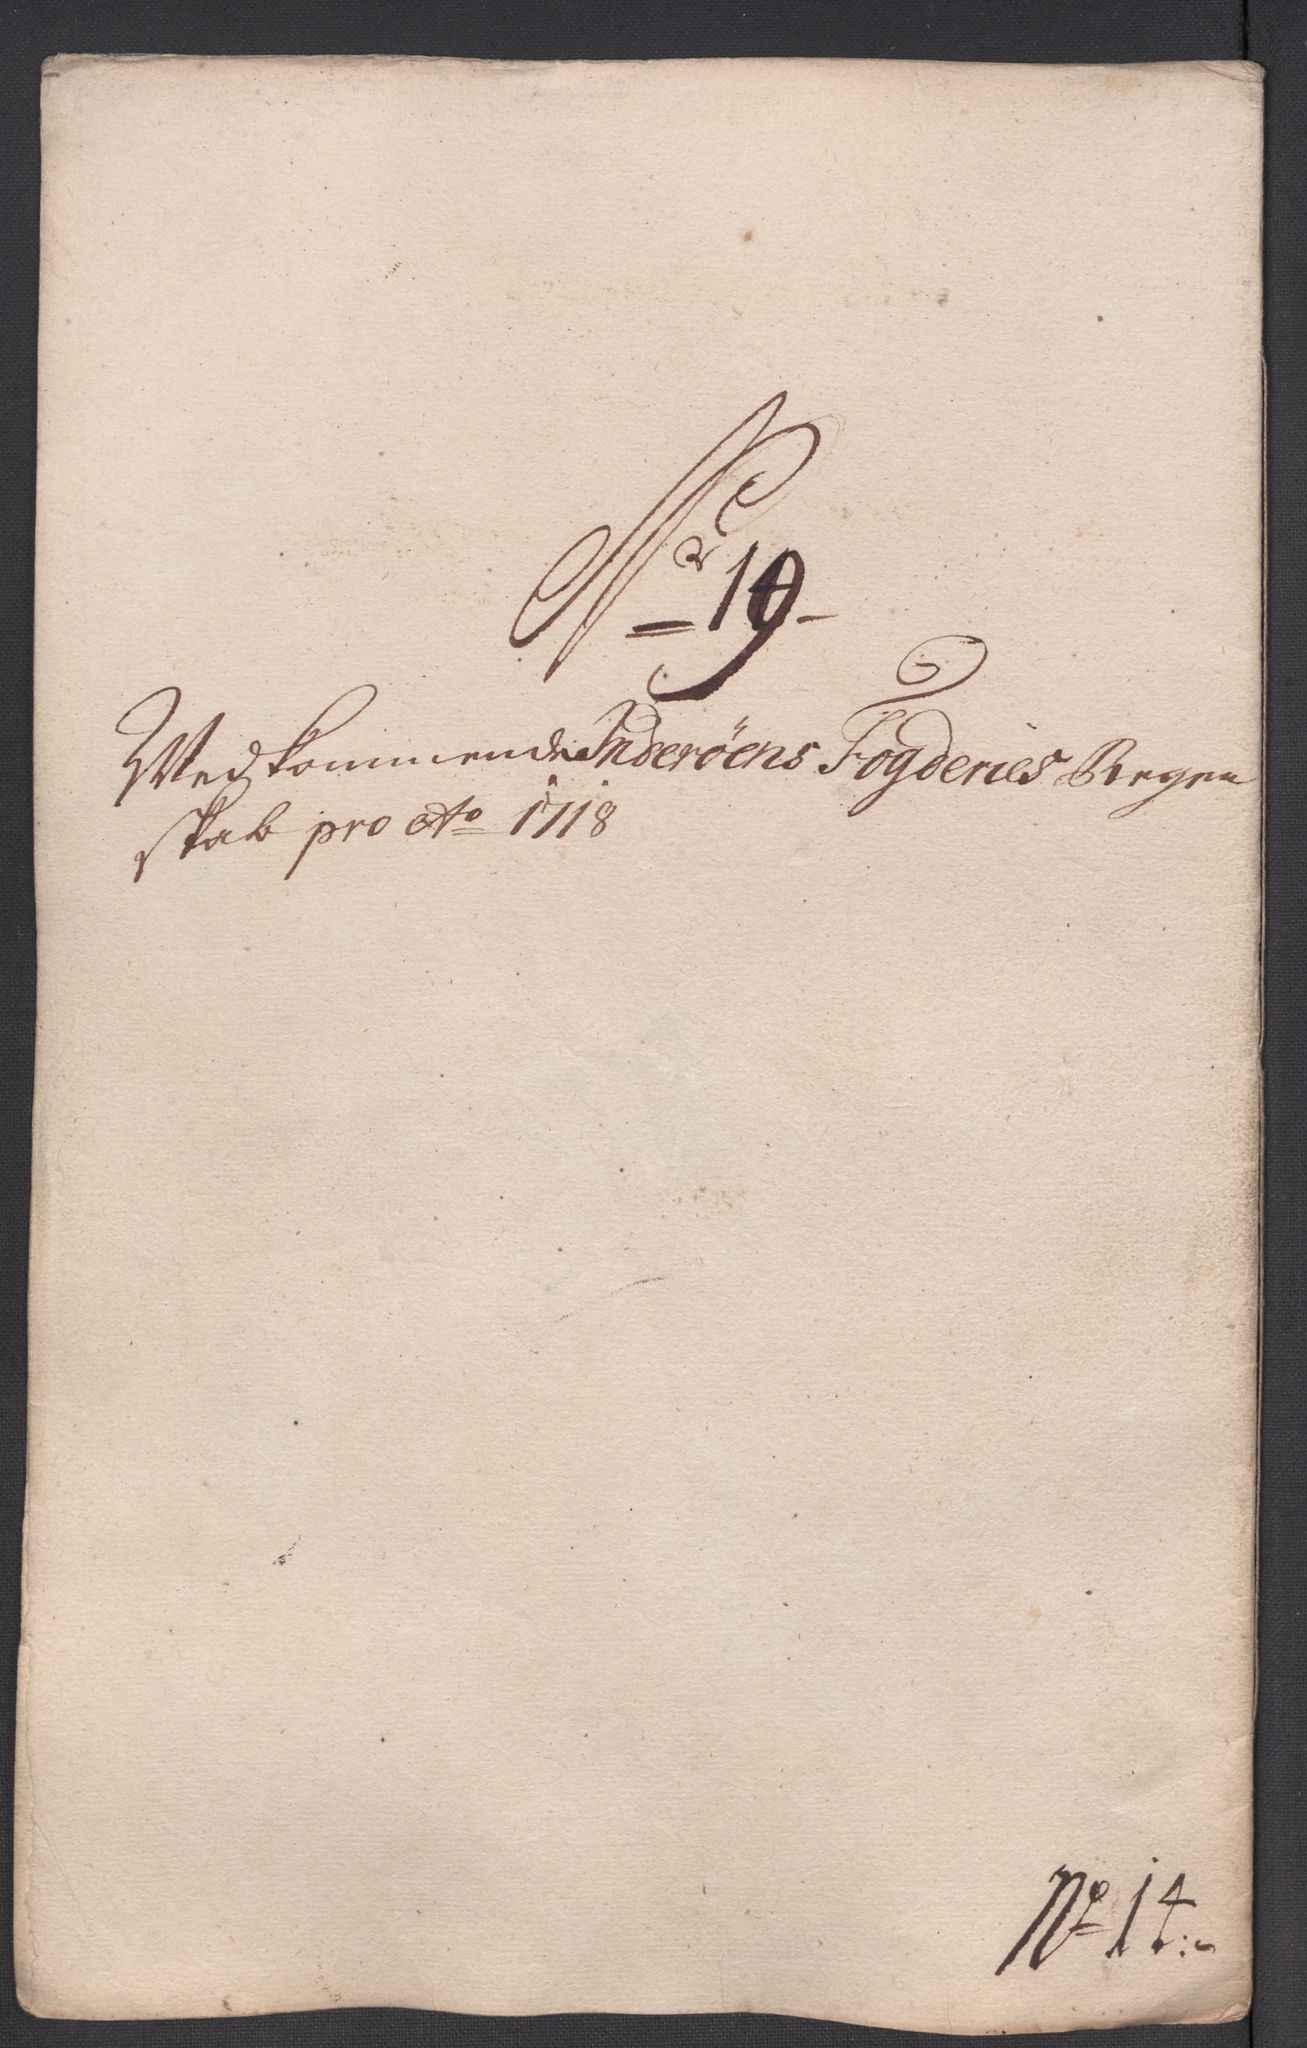 No 19
Wedkommende Inderöens Fogderies Regen
skab pro Ao 1718
No 14